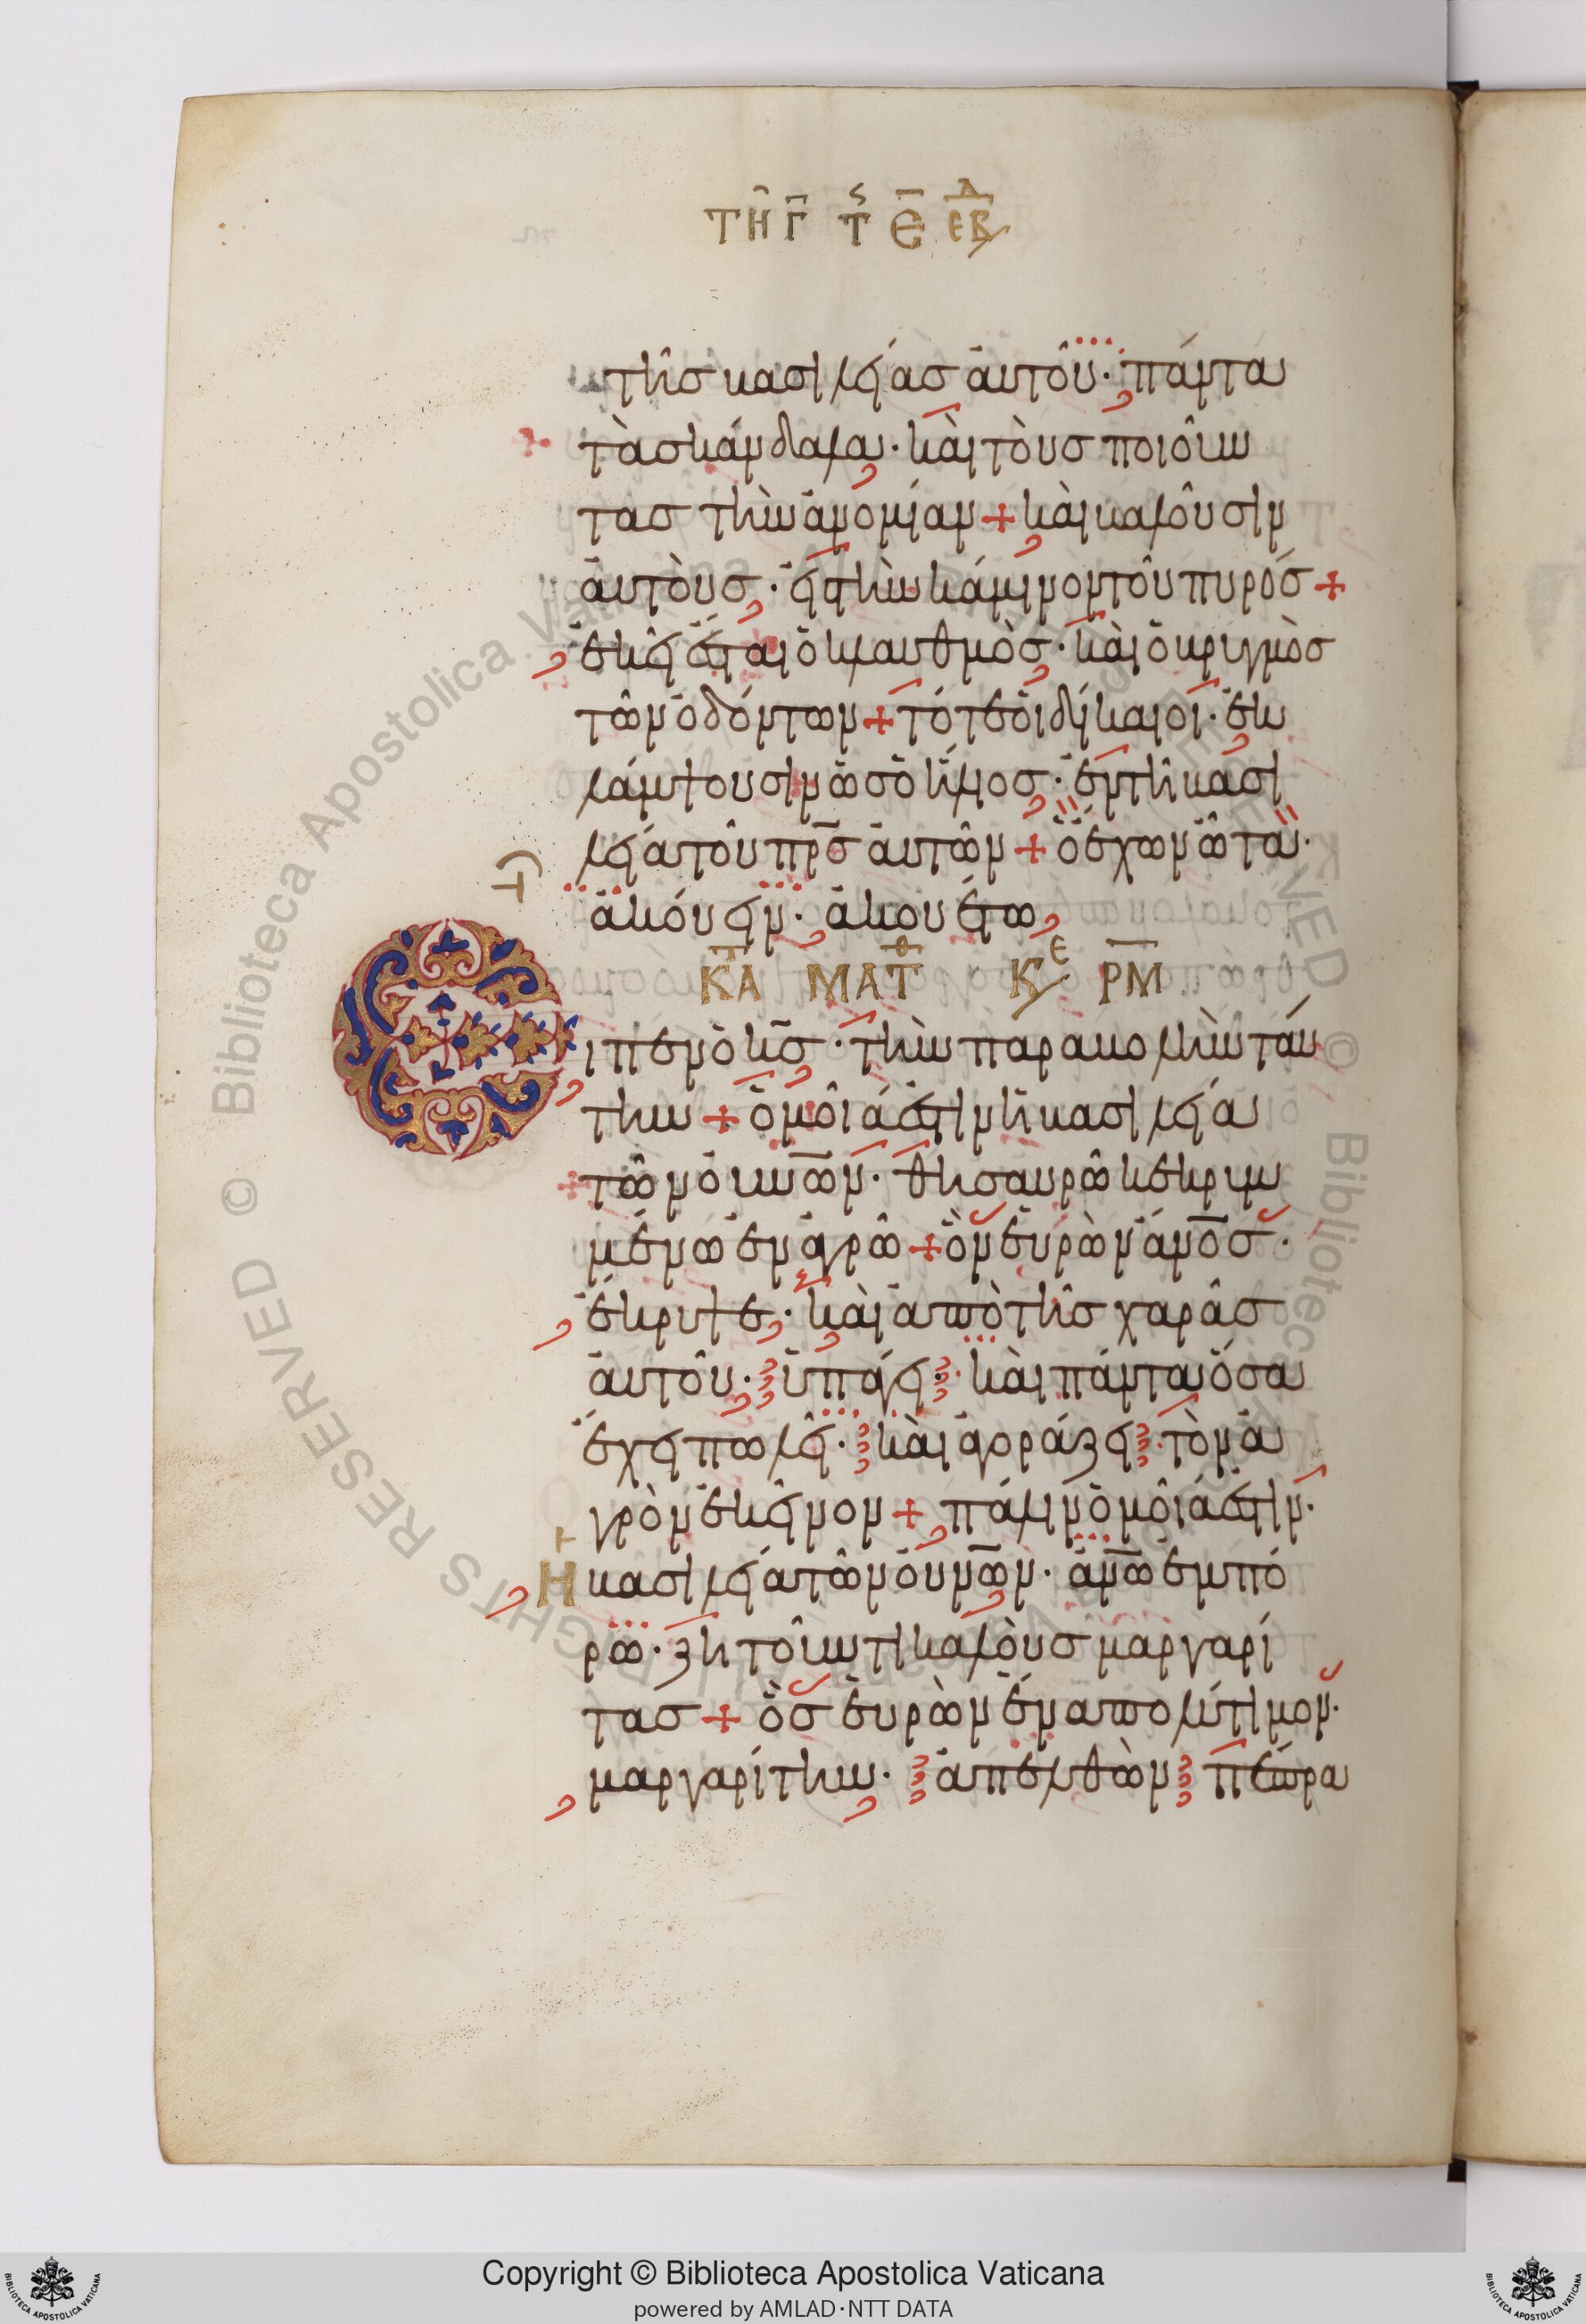 ΤΗ Γ Τ Ε ΕΒΔ
τῆσ βασιλείασ ἀυτοῦ· πάντα
τὰ σκάνδαλα· κὰι τοὺσ ποιοῦν
τασ τὴν ἀνομίαν + κὰι βαλοῦσιν
ἀυτοὺσ· εἰσ τὴν κάμινον τοῦ πυρόσ +
ἐκεῖ ἔσται ὁ κλαυθμὸσ· κὰι ὁ βρυγμὸσ
τῶν ὀδόντων + τότε ὁι δίκαιοι· ἐκ
λάμψουσιν ὡσ ὁ ἥλιοσ· ἐν τῆ βασι
λεία τοῦ π̅ρ̅σ̅ ἀυτῶν + ὁ ἔχων ὦτα·
ἀκούειν· ἀκουέτω
ΚΤΑ ΜΑΤΘ Κ/Ε ΡΜ
Ειπεν ὁ κ̅σ̅· τὴν παραβολὴν ταύ
την + ὁμοία ἐστὶν ἡ βασιλεία
τῶν ὀυν̅ω̅ν· θησαυρῶ κεκρυμ
μένω ἐν ἀγρῶ + ὃν ἑυρὼν ἄν̅ο̅σ̅·
ἔκρυψε· κὰι ἀπὸ τῆσ χαρᾶσ
ἀυτοῦ· ὑπάγει· κὰι πάντα ὅσα
ἔχει πωλεῖ· κὰι ἀγοράζει· τὸν ἀ
γρὸν ἐκεῖνον + πάλιν ὁμοία ἐστὶν·
Η βασιλεία τῶν ὀυν̅ω̅ν· ἀν̅ω̅ ἐμπό
ρω· ζητοῦντι καλοὺσ μαργαρί
τασ + ὃσ ἑυρὼν ἕνα πολύτιμον·
μαργαρίτην· ἀπελθὼν πέπρα
Copyright © Biblioteca Apostolica Vaticana
powered by AMLAD·NTT DATA